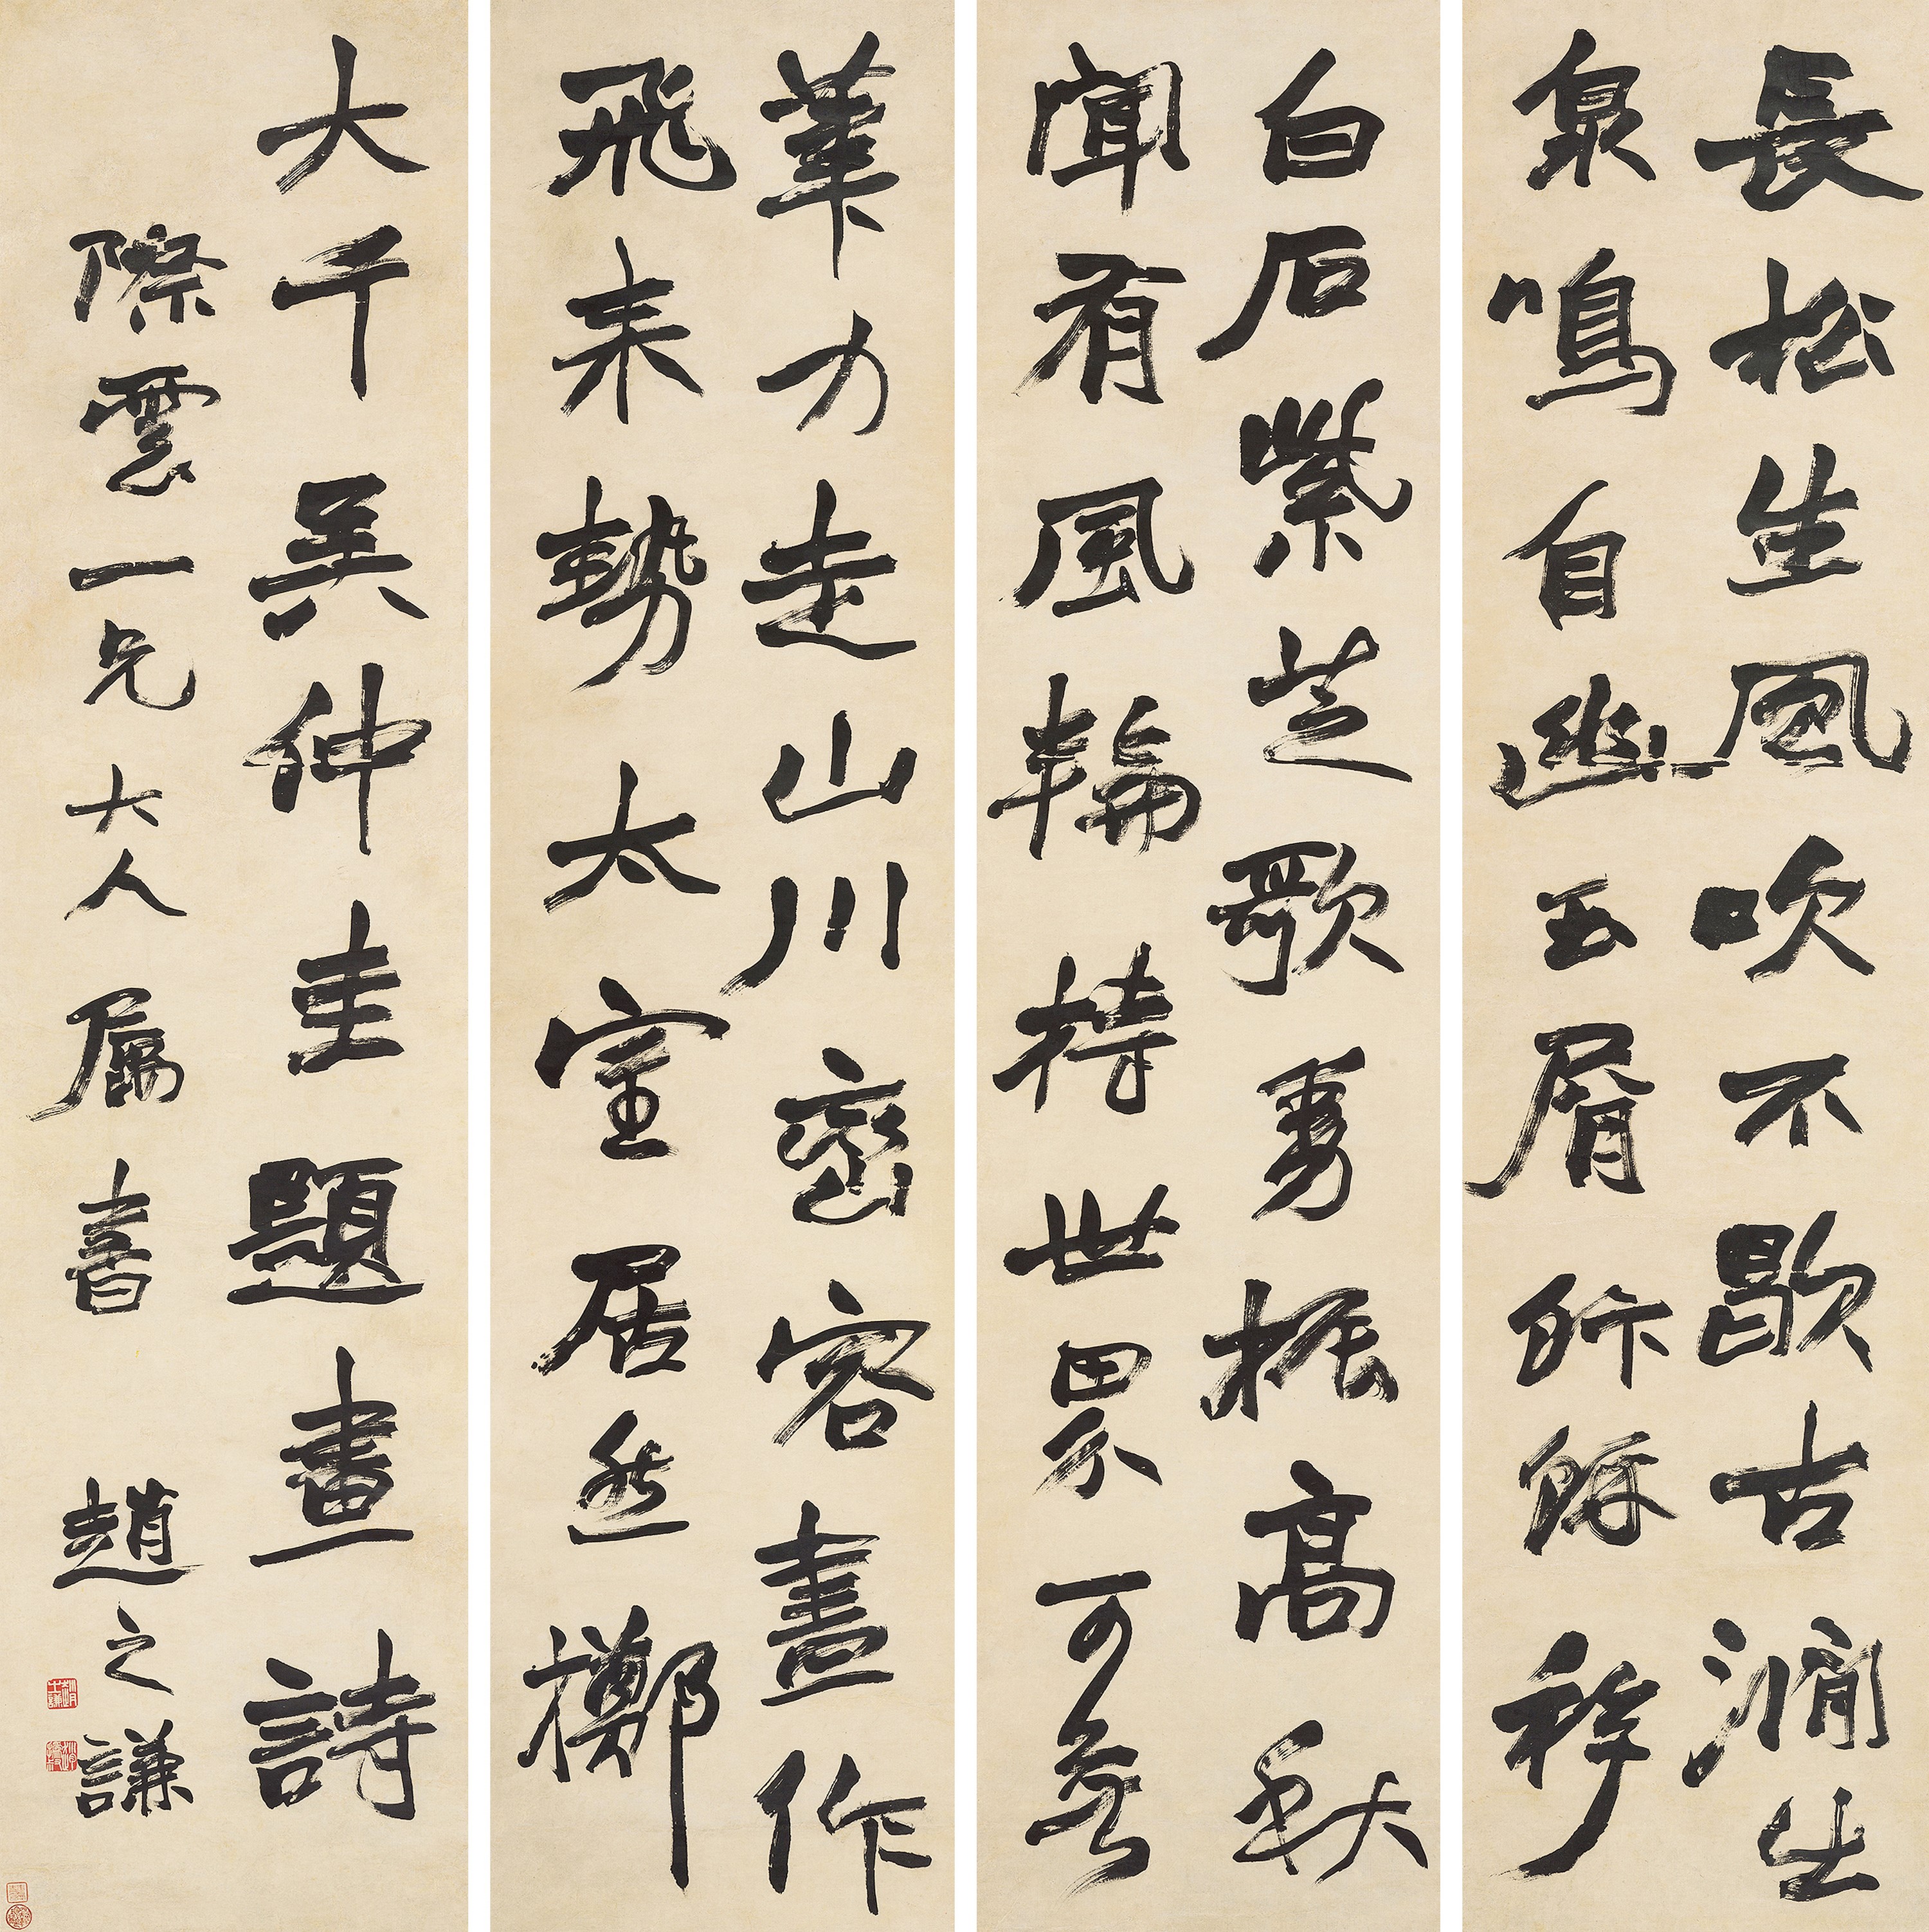 長松生風吹不歇古澗出
泉鳴自幽玉屑飰餘移
白石紫芝歌勇振高秋
聞有風輪持世界可無
筆力走山川巒容盡作
飛來勢太室居然擲
大千吳仲圭題畫詩
際雲一兄大人屬書 趙之謙